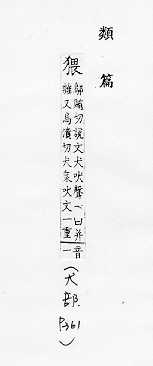 類篇
猥
鄔賄切說文犬吠聲一曰并音
雜又烏潰切犬衆吠文一重一
(犬部 P361)